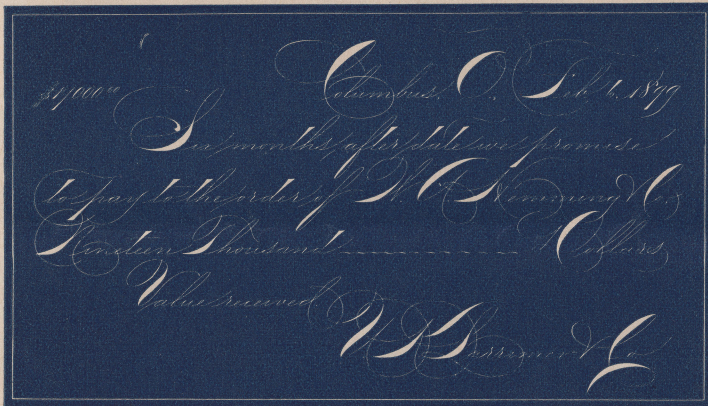 $19,000⁰⁰ Columbus, O. Feb. 6, 1899
Six months after date we promise
to pay to the order of & Co.,
Nineteen Thousand Dollars,
Value received
& Co